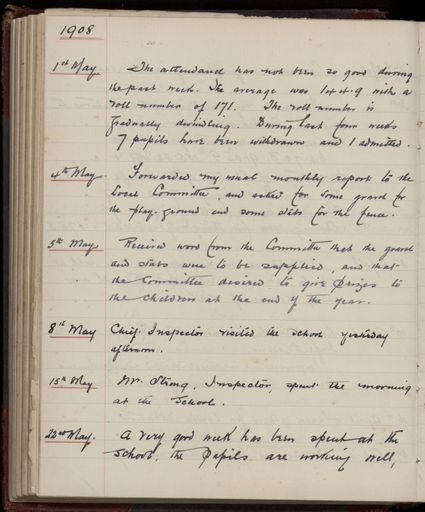 1908
1st May The attendance has not been so good during
the past week. The average was 144.9 with a
roll number of 171. The roll number is
gradually dwindling. During last four weeks
7 pupils have been withdrawn and 1 admitted.
4th May Forwarded my usual monthly report to the
Local Committee, and asked for some gravel for
the play ground and some slats for the fence.
5th May Received word from the Committee that the gravel
and slats were to be supplied, and that
the Committee desired to give Prizes to
the children at the end of the year.
8th May Chief Inspector visited the school yesterday
afternoon.
15th May Mr. Strong, Inspector, spent the morning
at the School.
22nd May. A very good week has been spent at the
School, the Pupils are working well,